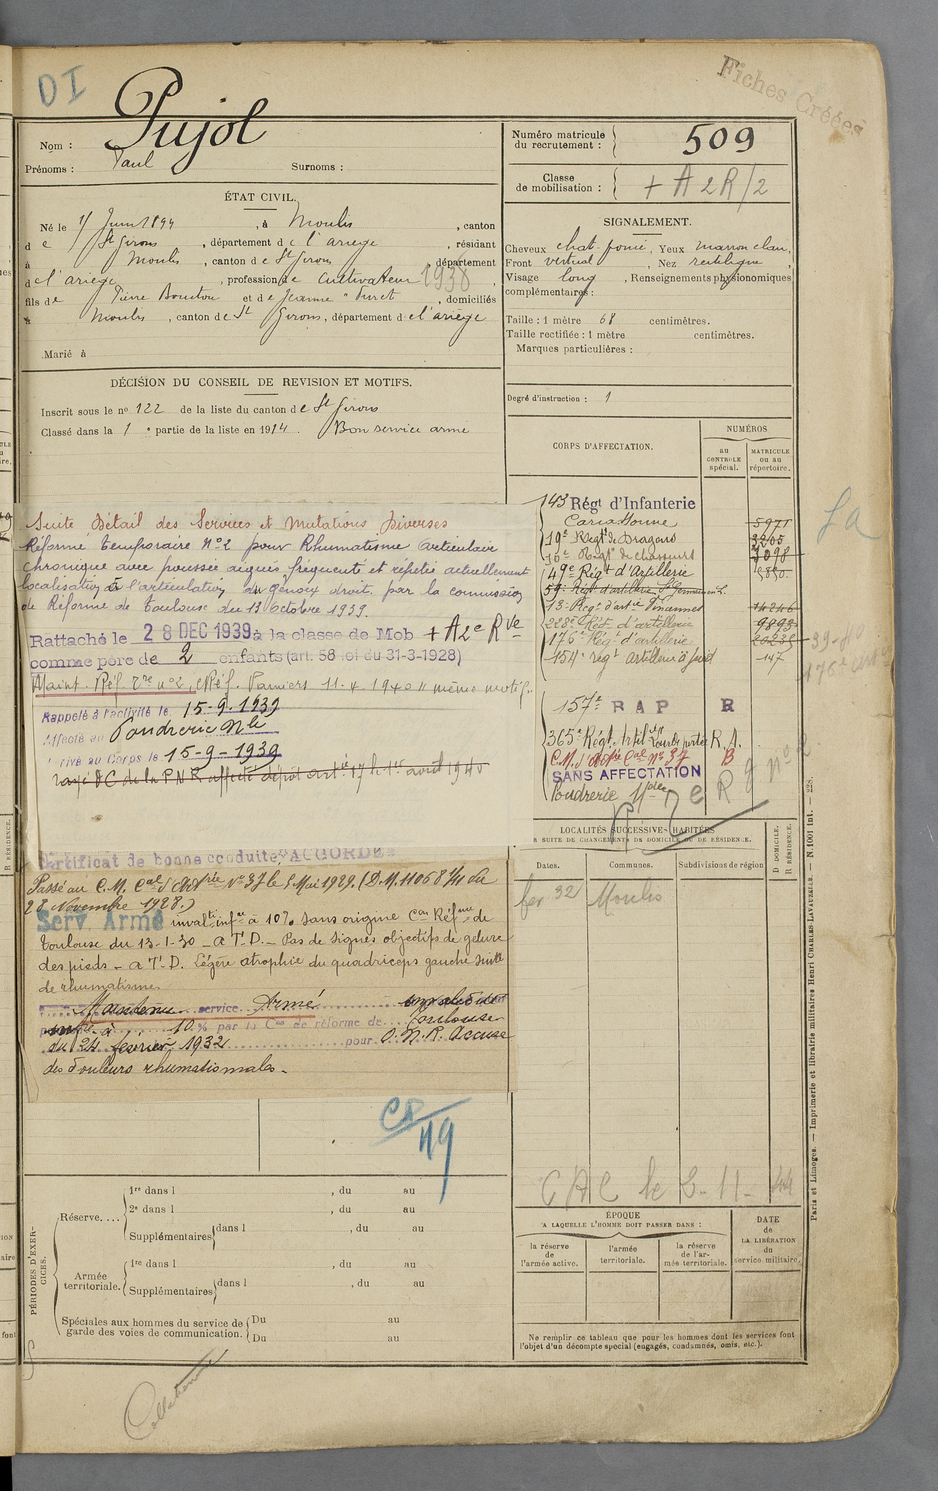 DI
Fiches Créées
Nom : Pujol
Prénoms : Paul Surnoms :
Numéro matricule du recrutement : 509
Classe de mobilisation : + A 2 R/2
ÉTAT CIVIL.
Né le Juin 1894, à Moulis, canton
de St Girons, département de l'ariège, résidant
à Moulis, canton de St Girons, département
de l'ariège, profession de cultivateur 1938,
fils de Pierre et de Jeanne, domiciliés
à Moulis, canton de St Girons, département de l'ariège
Marié à
SIGNALEMENT.
Cheveux chat. foncé, Yeux marron clair,
Front vertical, Nez rectiligne,
Visage long, Renseignements physionomiques
complémentaires :
Taille : 1 mètre 68 centimètres.
Taille rectifiée : 1 mètre centimètres.
Marques particulières :
DÉCISION DU CONSEIL DE REVISION ET MOTIFS.
Inscrit sous le no 122 de la liste du canton de St Girons
Classé dans la 1e partie de la liste en 1914. Bon service armé
Degré d'instruction : 1
CORPS D'AFFECTATION.
NUMÉROS
au CONTRÔLE spécial.
MATRICULE ou au répertoire.
143 Régt d'Infanterie
Carcassonne 5971
19e Régt de Dragons 3205
10e Régt de chasseurs 1098
49e Régt d'Artillerie
59e Régt d'artillerie
13e Régt d'artie Vincennes 14246
228e Régt d'artillerie 9393
176e Régt d'artillerie
154e régt artillerie à pied 147
157e R A P R
365e Régt Artil lourde portée R. A.
C.M. d'Artie Cal No 37 B
SANS AFFECTATION
Poudrerie Nle
Suite Détail des Services et Mutations Diverses
Réformé temporaire No 2 pour Rhumatisme articulaire
chronique avec poussée aigues fréquente et répétée actuellement
localisation à l'articulation du genoux droit. par la commission
de Réforme de Toulouse du 13 octobre 1939.
Rattaché le 28 DEC 1939 à la classe de Mob + A2e Rve
comme père de 2 enfants (art. 58 loi du 31-3-1928)
Maint. Réf. Tre no 2, Réf. Pamiers 11-4-1940 " même motif.
Rappelé à l'activité le 15-9-1939
Affecté au Poudrerie Nle
Arrivé au Corps le 15-9-1939
rayé de la P N R affecté dépôt artie 17 le 1er avril 1940
Certificat de bonne conduite "ACCORDÉ"
Passé au C.M. Cal d'Artrie No 37 le 1 Mai 1929. (D.M. 11068 1/11 du
28 Novembre 1928.)
Serv. Armé inval. infre à 10% sans origine Con Réfme de
Toulouse du 13-1-30 _ a T.D. _ Pas de signes objectifs de gelure
des pieds _ a T.D. Légère atrophie du quadriceps gauche suite
de rhumatisme.
Maintenu service Armé invalidité
infre à 10 % par la Con de réforme de Toulouse
du 24 février 1932 pour P.N.R. Accuse
des douleurs rhumatismales.
LOCALITÉS SUCCESSIVES HABITÉES
PAR SUITE DE CHANGEMENTS DE DOMICILE OU DE RÉSIDENCE.
Dates. Communes. Subdivisions de région
D DOMICILE.
R RÉSIDENCE.
fev 32 Moulis
CAC le 3-11-44
49
PÉRIODES D'EXERCICES.
Réserve.... 1re dans l , du au
2e dans l , du au
Supplémentaires dans l , du au
Armée territoriale. 1re dans l , du au
Supplémentaires dans l , du au
Spéciales aux hommes du service de garde des voies de communication. Du au
Du au
ÉPOQUE
A LAQUELLE L'HOMME DOIT PASSER DANS :
la réserve de l'armée active.
l'armée territoriale.
la réserve de l'armée territoriale.
DATE de LA LIBÉRATION du service militaire.
Ne remplir ce tableau que pour les hommes dont les services font
l'objet d'un décompte spécial (engagés, condamnés, omis, etc.).
Paris et Limoges. — Imprimerie et librairie militaires Henri CHARLES-LAVAUZELLE. — N. 1001 Int. — 22s.
Collationné